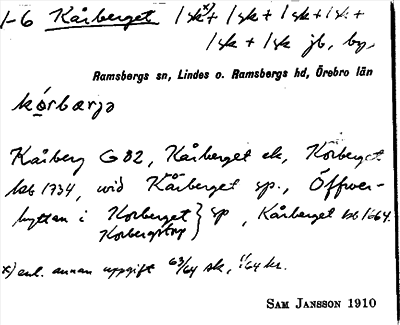 1-6 Kårberget 1 sk x)+ 1 sk + 1 sk + 1 sk +
1 sk + 1 sk jb, by,
Ramsbergs sn, Lindes o. Ramsbergs hd, Örebro län
kórbærjə
Kårberg G 82, Kårberget ek, Korberget
kb 1734, vid Kårberget sp., Öffwer-
hyttan i Korberget } sp, Kårberget kb 1664.
Korbergstorp
x) enl. annan uppgift 63/64 sk, 1/64 kr.
SAM JANSSON 1910